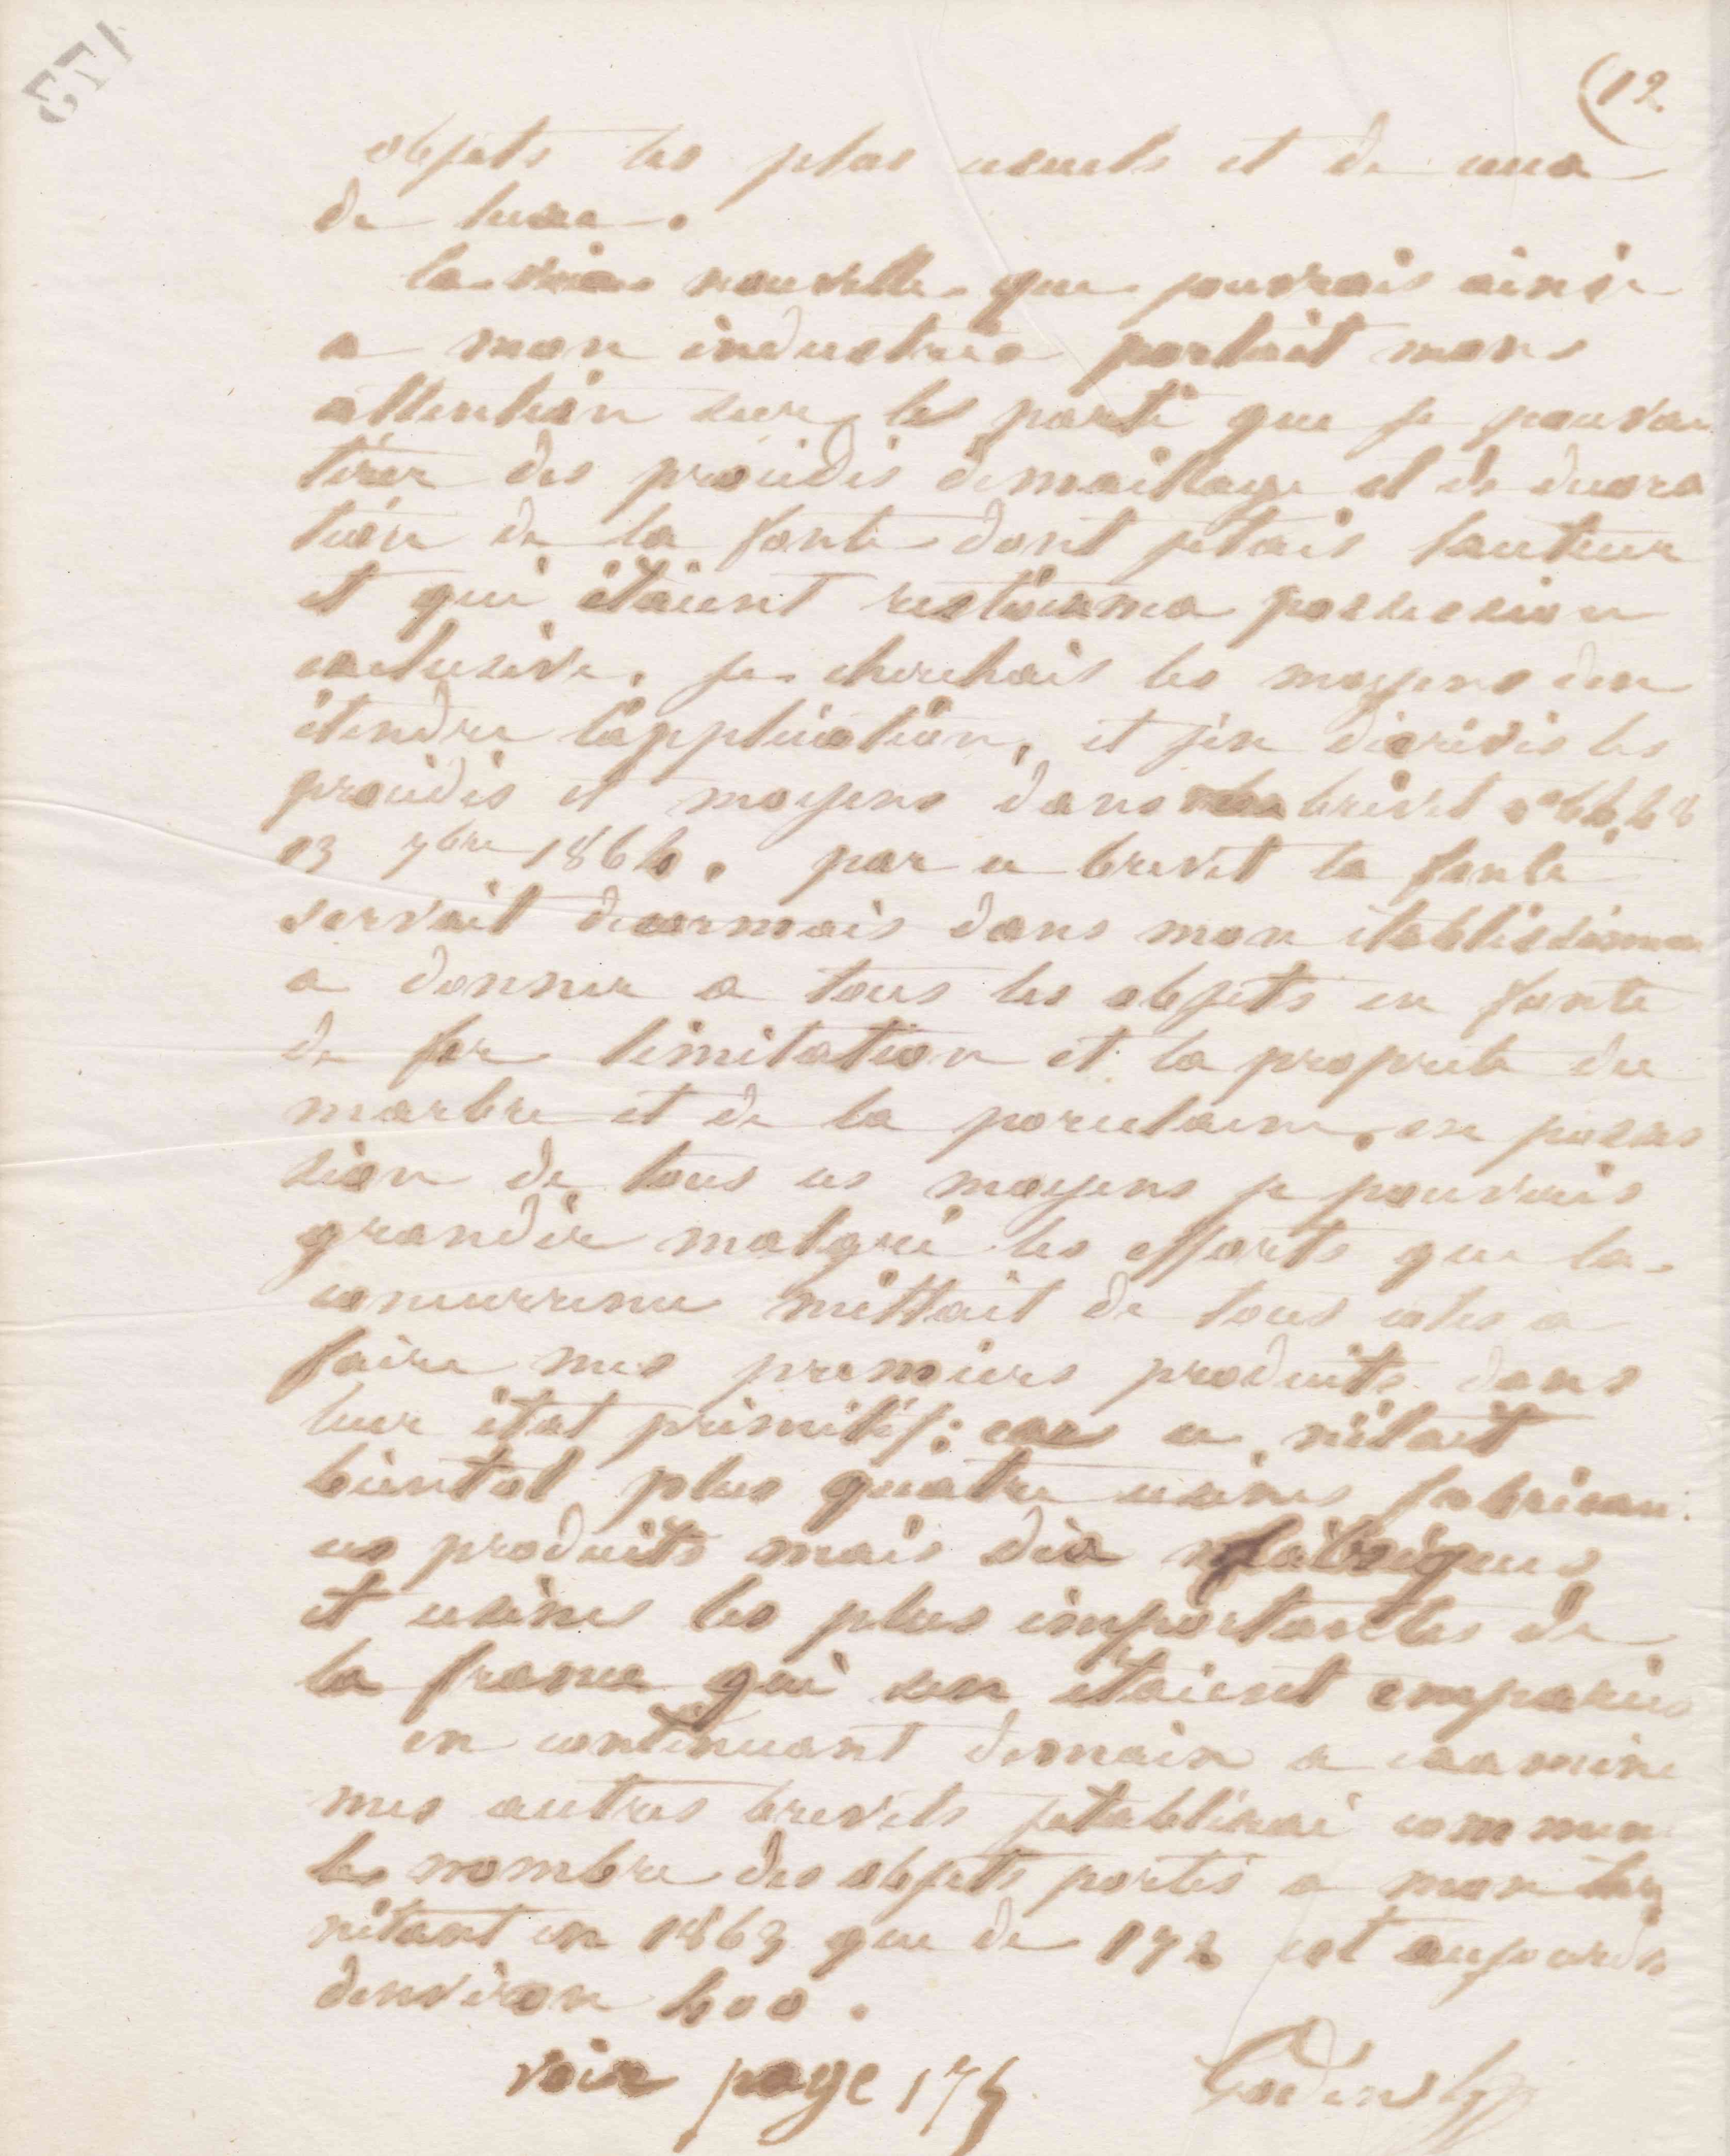 (12
objets les plus usuels et de ceux
de luxe.
la voie nouvelle que jouvrais ainsi
a mon industrie portait mon
attention sur le parti que je pouvai
tirer des procédés demaillage et de decora
tion de la fonte dont jetais lauteur
et qui étaient restés ma possession
exclusive. je cherchais les moyens den
étendre lapplication, et jen décrivis les
procédés et moyens dans brevet
13 7bre 1864. par ce brevet la fonte
servait desormais dans mon etablisseme
a donner a tous les objets en fonte
de fer limitation et la propreté du
marbre et de la porcelaine. en posses
sion de tous ces moyens je pouvais
grandir malgré les efforts que la
concurrence mettait de tous cotes a
faire mes premiers produits dans
leur état primitif: car ce nétait
bientot plus quatre usines fabrican
ces produits mais dix fabriques
et usines les plus importantes de
la france qui sen étaient emparées
en continuant demain a examine
mes autres brevets jetablirai commen
le nombre des objets portés a mon
nétant en 1863 que de 172 est aujourdh
denviron 400.
voir page 175
Godin
173